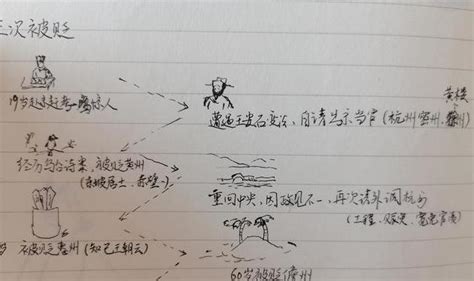 三次被贬
19岁赴京赶考一鸣惊人
黄楼
遭遇王安石变法，自请出京当官（杭州、密州、徐州）
经历乌台诗案，被贬黄州
（东坡居士、赤壁）
重回中央，因政见不一，再次请求外调杭州
（工程、
被贬惠州（知己王朝云）
60岁被贬儋州